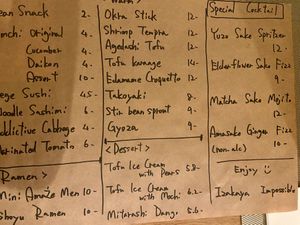 Snack 2.-
Original 4-
Cucumber 4-
Daikon 4-
Assort 10-
Sushi 4.5-
Noodle Sashimi 6-
Addictive Cabbage 4-
Marinated Tomato 6-
Ramen>
Mini Amaze Men 10-
Shoyu Ramen 10-
Okra Stick 12-
Shrimp Tenpra 12-
Agedashi Tofu 12-
Tofu Karaage 14-
Edamame Croquette 12-
Takoyaki 8-
Stir bean sprout 9-
Gyoza 9-
<Dessert>
Tofu Ice Cream
with Pears 5.8-
Tofu Ice Cream
with Mochi 6.2-
Mitarashi Dang. 5.6-
Special Cocktail
Yuzu Sake Spritzer
12-
Elderflower Sake Fizz
9-
Matcha Sake Mojito
12-
Amasake Ginger Fizz
(non-alc) 10-
Enjoy
Izakaya Impossible